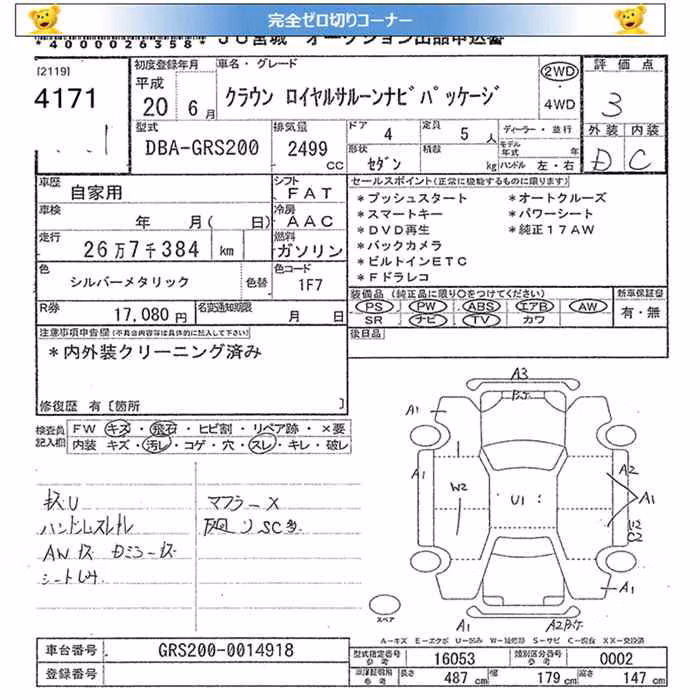 完全ゼロ切りコーナー
*4000026358* JU宮城 オークション出品申込書
[2119]
4171
初度登録年月
平成
20 6月
車名・グレード
クラウン ロイヤルサルーンナビパッケージ
2WD
4WD
評価点
3
外装 内装
D C
型式
DBA-GRS200
排気量
2499
CC
ドア 4
定員 5 人
形状
セダン
積載
kg
ディーラー・並行
モデル年式 年
ハンドル 左・右
車歴
自家用
シフト
FAT
車検
年 月( 日)
冷房
AAC
走行
26万7千384 km
燃料
ガソリン
色
シルバーメタリック
色替
色コード
1F7
R券
17,080円
名変通知期限
月 日
セールスポイント(正常に機能するものに限ります)
*プッシュスタート *オートクルーズ
*スマートキー *パワーシート
*DVD再生 *純正17AW
*バックカメラ
*ビルトインETC
*Fドラレコ
装備品(純正品に限り○をつけてください)
PS PW ABS エアB AW
SR ナビ TV カワ
新車保証書
有・無
後日品
注意事項申告欄(不具合内容等は具体的に記入して下さい)
*内外装クリーニング済み
修復歴 有〔箇所 〕
検査員記入欄
FW キズ・飛石・ヒビ割・リペア跡・×要
内装 キズ・汚レ・コゲ・穴・スレ・キレ・破レ
キズU
ハンドルスレ
AWキズ
マフラーX
A3
A1
A1
W2
U1
A2
A1
C2
A1
A1
A2
スペア
A-キズ E-エクボ U-凹み W-補修跡 S-サビ C-腐食 XX-交換済
車台番号
GRS200-0014918
登録番号
型式指定番号 参考
16053
類別区分番号 参考
0002
長さ
487 cm
幅
179 cm
高さ
147 cm